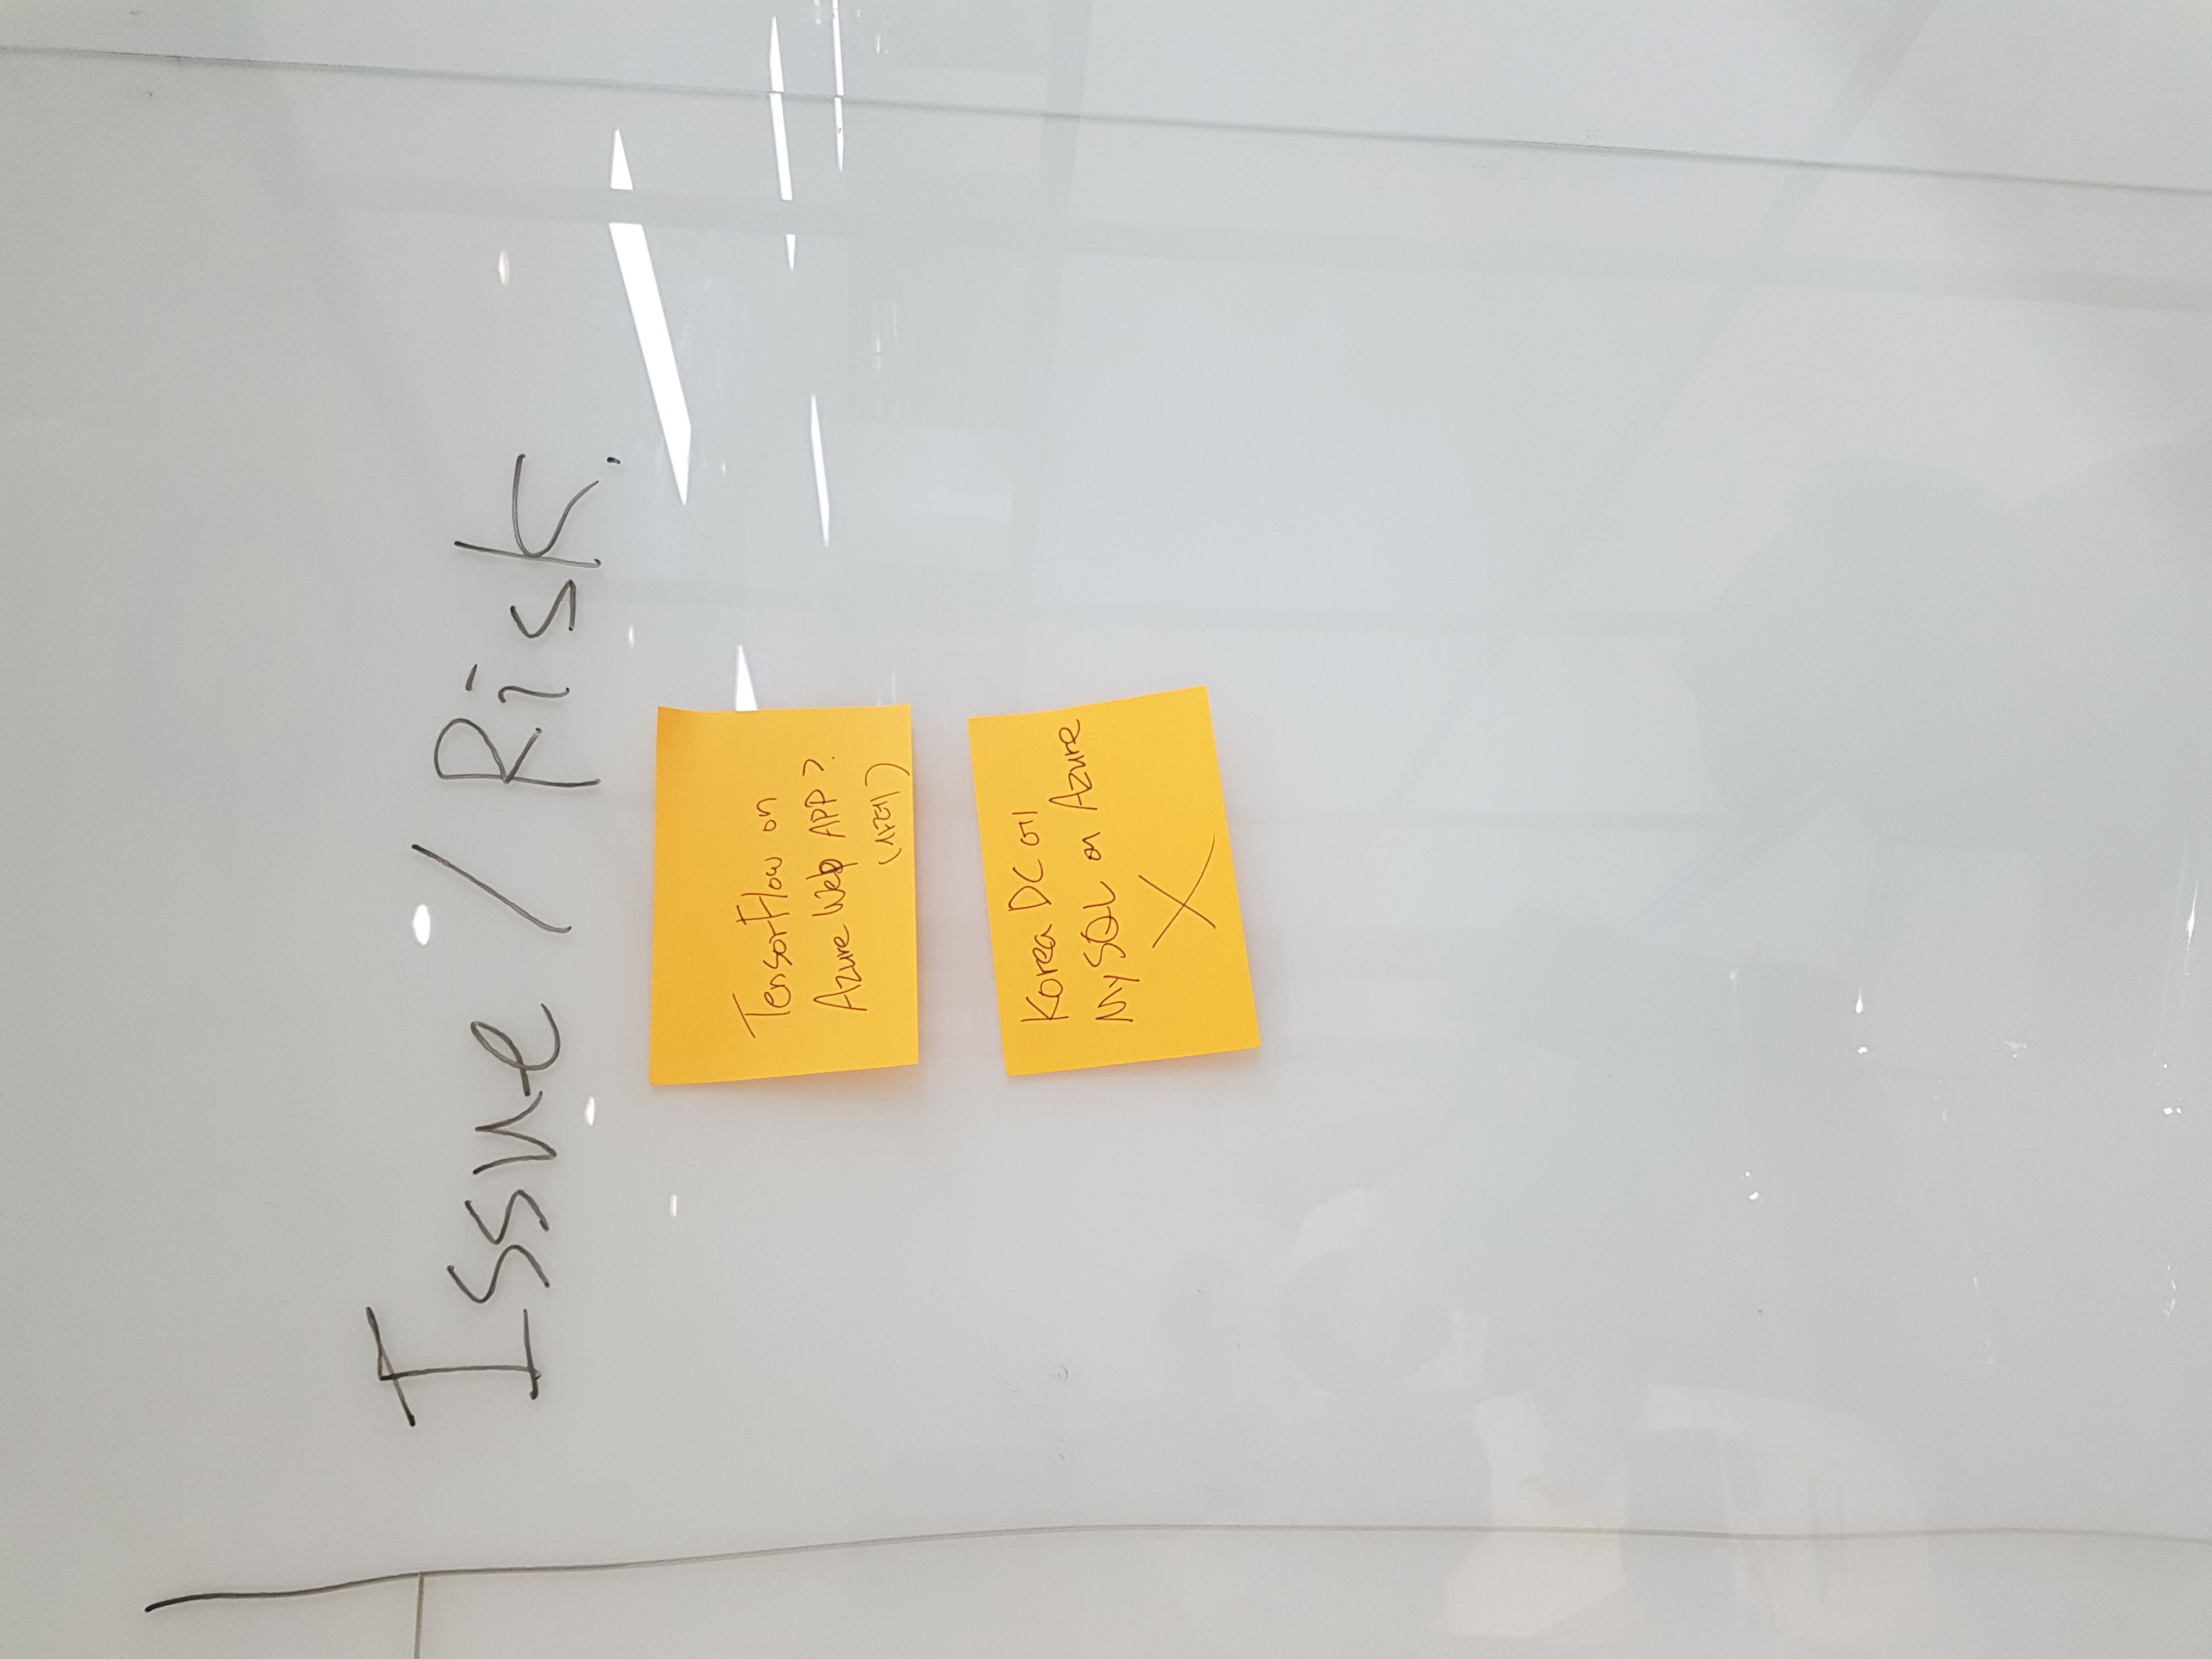 Issue / Risk.
TensorFlow on
Azure Web APP?
(사례)
Korea DC에
MySQL on Azure
X